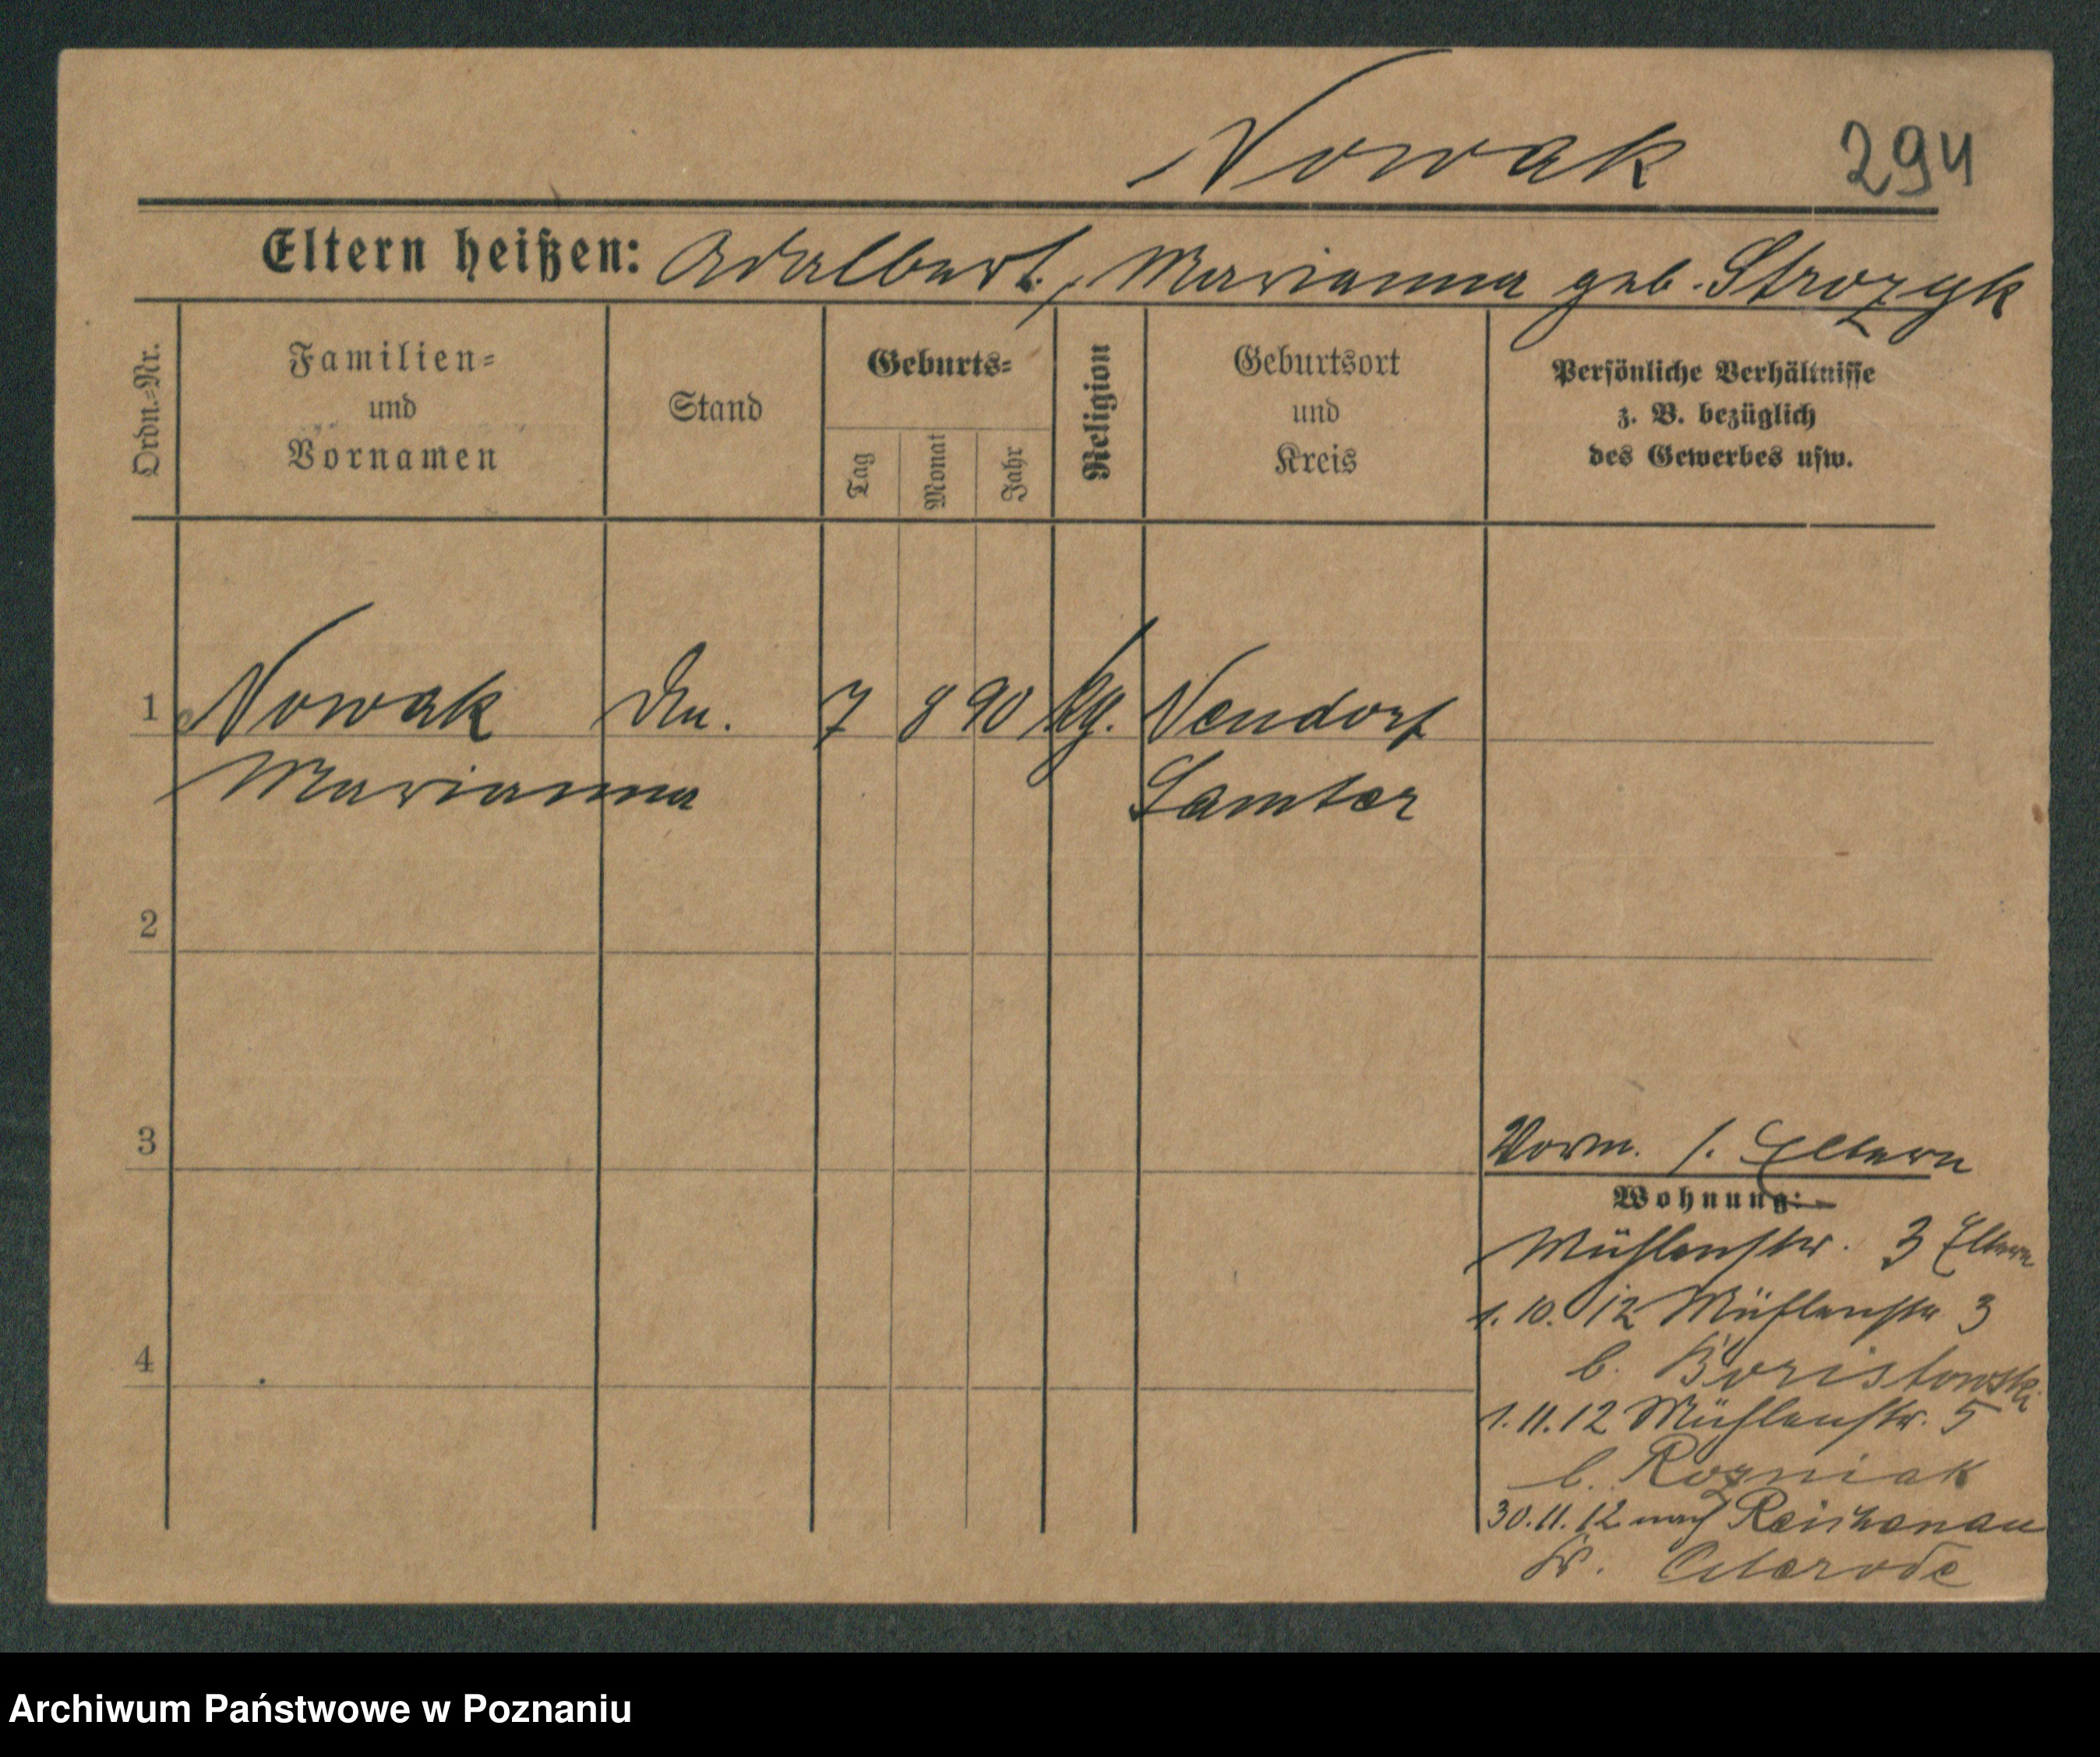 Nowak 294
Eltern heißen: Adalbert, Marianna geb. Strozyk
Ordn.-Nr.
Familien-
und
Vornamen
Stand
Geburts-
Tag
Monat
Jahr
Religion
Geburtsort
und
Kreis
Persönliche Verhältnisse
z. B. bezüglich
des Gewerbes usw.
1 Nowak 7 8 90 kg. Neudorf
Marianna Samter
2
3
Vorm. s. Eltern
Wohnung:
Mühlenstr. 3 Eltern
1. 10. 12 Mühlenstr 3
4
b. Boristowski
1. 11. 12 Mühlenstr. 5
b. Rozniak
30. 11. 12 nach Reichenau
Kr. Osterode
Archiwum Państwowe w Poznaniu